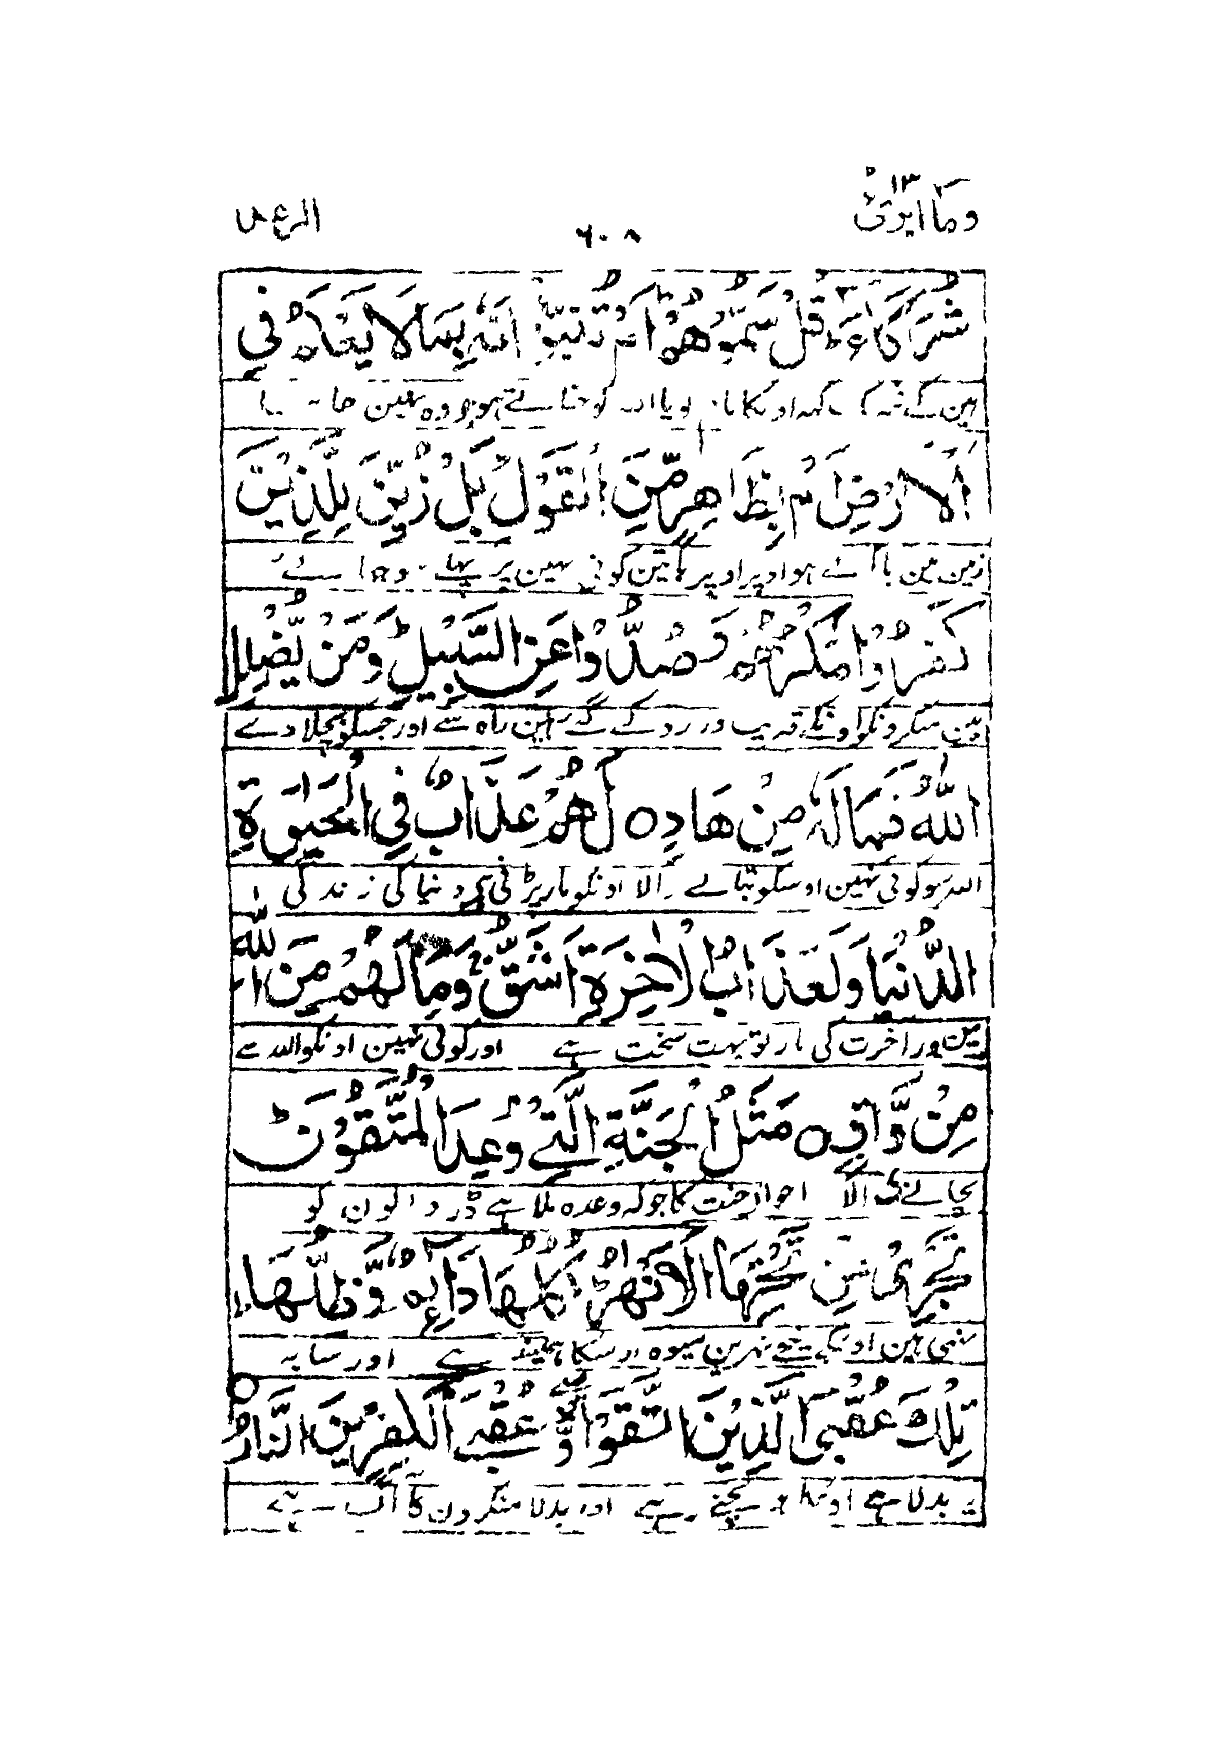 وما ابرئ ١٣
٦٠٨
الرعد
شُرَكَاءَ قُلْ سَمُّوهُمْ اَمْ تُنَبِّئُوْنَهٗ بِمَا لَا يَعْلَمُ فِي
ہین کے کہہ اونکا یا اللہ کو جتاتے ہو جو وہ نہین
الْاَرْضِ اَمْ بِظَاهِرٍ مِّنَ الْقَوْلِ بَلْ زُيِّنَ لِلَّذِيْنَ
زمین مین یا کرتے ہو اوپر اوپر باتین کوئی نہین پر
كَفَرُوْا مَكْرُهُمْ وَصُدُّوْا عَنِ السَّبِيْلِ وَمَنْ يُّضْلِلِ
ہین منکرونکو اونکے فریب اور روکے گئے ہین راہ سے اور جسکو بچلا دے
اللّٰهُ فَمَا لَهٗ مِنْ هَادٍ ه لَهُمْ عَذَابٌ فِي الْحَيٰوةِ
اللہ سو کوئی نہین اوسکو بتانے والا اونکو مار پڑنی ہی دنیا کی زندگی
الدُّنْيَا وَلَعَذَابُ الْاٰخِرَةِ اَشَقُّ وَمَا لَهُمْ مِّنَ اللّٰهِ
مین اور آخرت کی مار تو بہت سخت ہے اور کوئی نہین اونکو اللہ سے
مِنْ وَّاقٍ ه مَثَلُ الْجَنَّةِ الَّتِيْ وُعِدَ الْمُتَّقُوْنَ ط
بچانے والا احوال جنت کا جو کہ وعدہ ملا ہے ڈر والون کو
تَجْرِيْ مِنْ تَحْتِهَا الْاَنْهٰرُ اُكُلُهَا دَآئِمٌ وَّظِلُّهَا
بہتی ہین اوسکے نیچے نہرین میوہ اوسکا ہمیشہ ہے اور سایہ
تِلْكَ عُقْبَى الَّذِيْنَ اتَّقَوْا وَّعُقْبَى الْكٰفِرِيْنَ النَّارُ
یہ بدلا ہے اونکا جو بچتے رہے اور بدلا منکرون کا آگ ہے